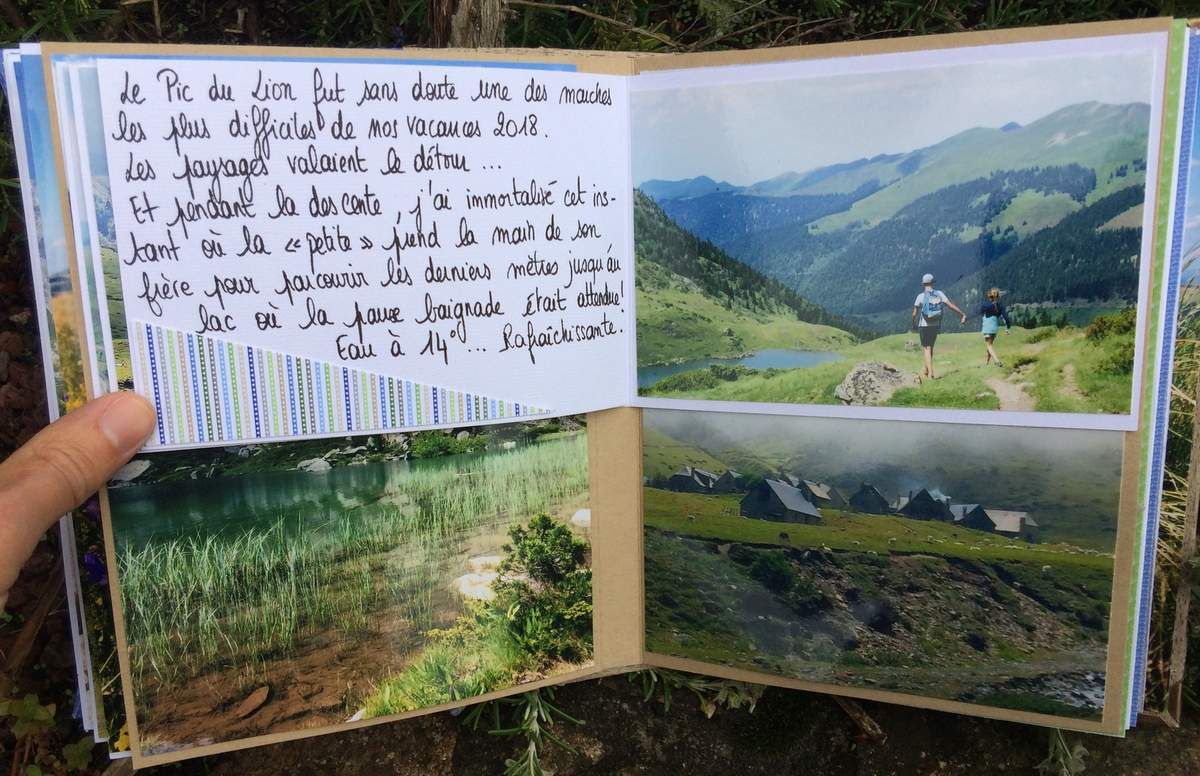 Le Pic du Lion fut sans doute une des marches
les plus difficiles de nos vacances 2018.
Les paysages valaient le détour ...
Et pendant la descente, j'ai immortalisé cet ins-
tant où la « petite » prend la main de son
frère pour parcourir les derniers mètres jusqu'au
lac où la pause baignade était attendue!
Eau à 14° ... Rafraîchissante.